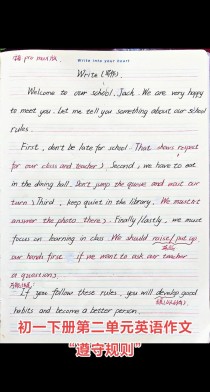 Write into your heart
Write (写作)
Welcome to our school, Jack. We are very happy
to meet you. Let me tell you something about our school
rules.
First, don't be late for school. That shows respect
for our class and teacher) Second, we have to eat
in the dining hall. Don't jump the queue and wait our
turn. Third, keep quiet in the library. We mustn't
answer the phone there. Finally/Lastly, we must
focus on learning in class. We should raise/put up
our hands first if we want to ask our teacher
a question.
If you follow these rules, you will develop good
habits and become a better person.
初一下册第二单元英语作文
“遵守规则”